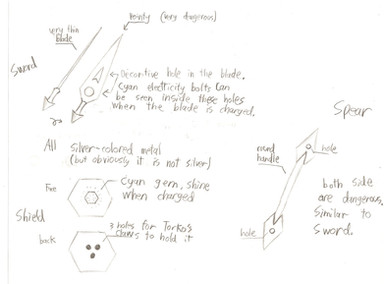 Pointy (very dangerous)
very thin
blade
Sword
Decorative hole in the blade.
Cyan electricity bolts can
be seen inside these holes
when the blade is charged.
All silver-colored metal
(but obviously it is not silver)
Cyan gem, shine
when charged
Shield
back
3 holes for Torko's
claws to hold it
Spear
hole
round
handle
both side
are dangerous.
Similar to
Sword.
hole